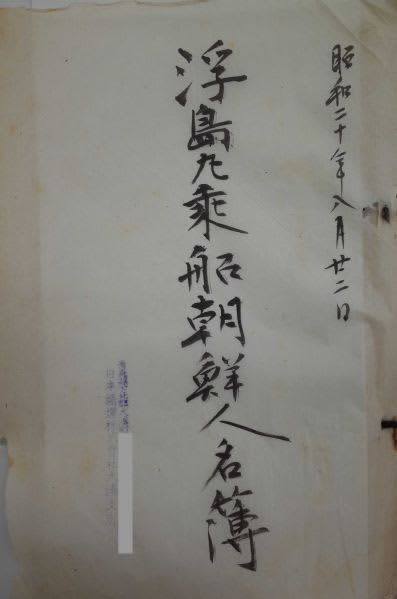 昭和二十年八月廿二日
浮島丸乗船朝鮮人名簿